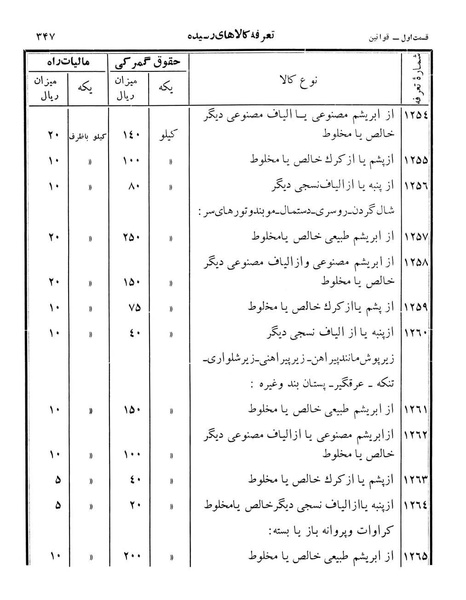 قسمت اول ــ قوانین تعرفه کالاهای رسیده ۳۴۷
شمارهٔ تعرفه نوع کالا حقوق گمرکی مالیات راه
یکه میزان ریال یکه میزان ریال
۱۲۵۴ از ابریشم مصنوعی یا الیاف مصنوعی دیگر
خالص یا مخلوط کیلو ۱۴۰ کیلو باظرف ۲۰
۱۲۵۵ ازپشم یا ازکرک خالص یا مخلوط » ۱۰۰ » ۱۰
۱۲۵۶ از پنبه یا از الیاف نسجی دیگر » ۸۰ » ۱۰
شال‌گردن ـ روسری ـ دستمال ـ موبند و تورهای سر :
۱۲۵۷ از ابریشم طبیعی خالص یا مخلوط » ۲۵۰ » ۲۰
۱۲۵۸ از ابریشم مصنوعی و از الیاف مصنوعی دیگر
خالص یا مخلوط » ۱۵۰ » ۲۰
۱۲۵۹ از پشم یا ازکرک خالص یا مخلوط » ۷۵ » ۱۰
۱۲۶۰ ازپنبه یا از الیاف نسجی دیگر » ۴۰ » ۱۰
زیرپوش مانند پیراهن ـ زیرپیراهنی ـ زیرشلواری ـ
تنکه ـ عرقگیر ـ پستان بند وغیره :
۱۲۶۱ از ابریشم طبیعی خالص یا مخلوط » ۱۵۰ » ۱۰
۱۲۶۲ ازابریشم مصنوعی یا ازالیاف مصنوعی دیگر
خالص یا مخلوط » ۱۰۰ » ۱۰
۱۲۶۳ ازپشم یا ازکرک خالص یا مخلوط » ۴۰ » ۵
۱۲۶۴ ازپنبه یا ازالیاف نسجی دیگر خالص یا مخلوط » ۲۰ » ۵
کراوات و پروانه باز یا بسته:
۱۲۶۵ از ابریشم طبیعی خالص یا مخلوط » ۲۰۰ » ۱۰